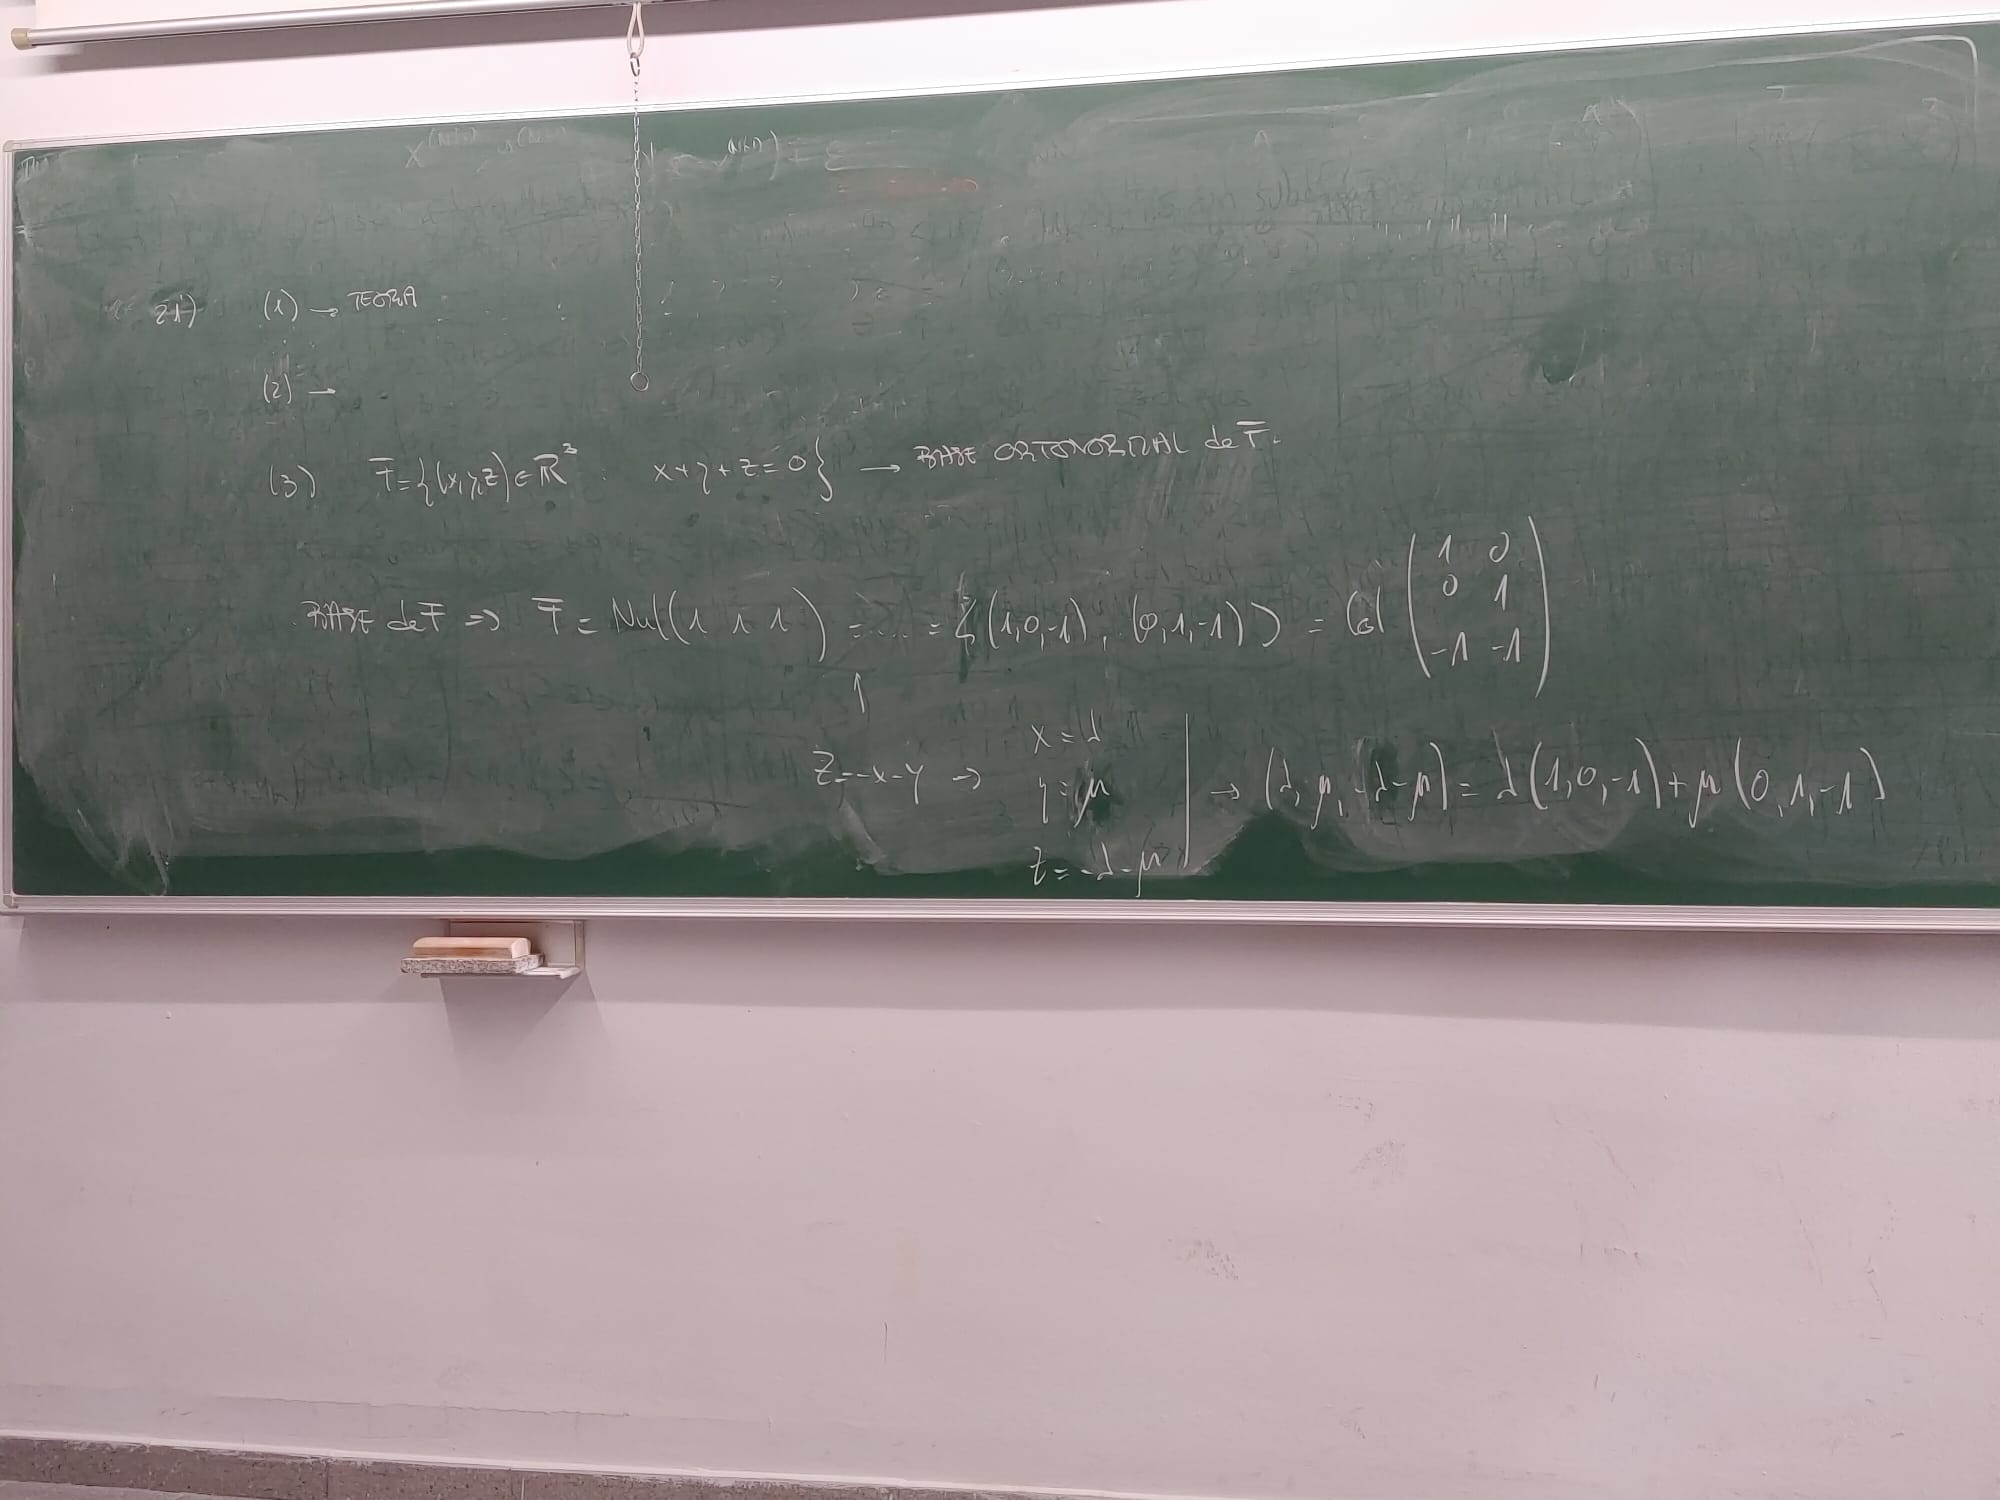 21) (1) → TEORIA
(2) →
(3) F = {(x,y,z) ∈ ℝ³ : x+y+z=0} → BASE ORTONORMAL de F.
BASE de F ⇒ F = Nul(1 1 1) = ... = ⟨(1,0,-1), (0,1,-1)⟩ = Col (1 0
0 1
-1 -1)
↑
z=-x-y → x=λ
y=μ
z=-λ-μ | → (λ, μ, -λ-μ) = λ(1,0,-1)+μ(0,1,-1)